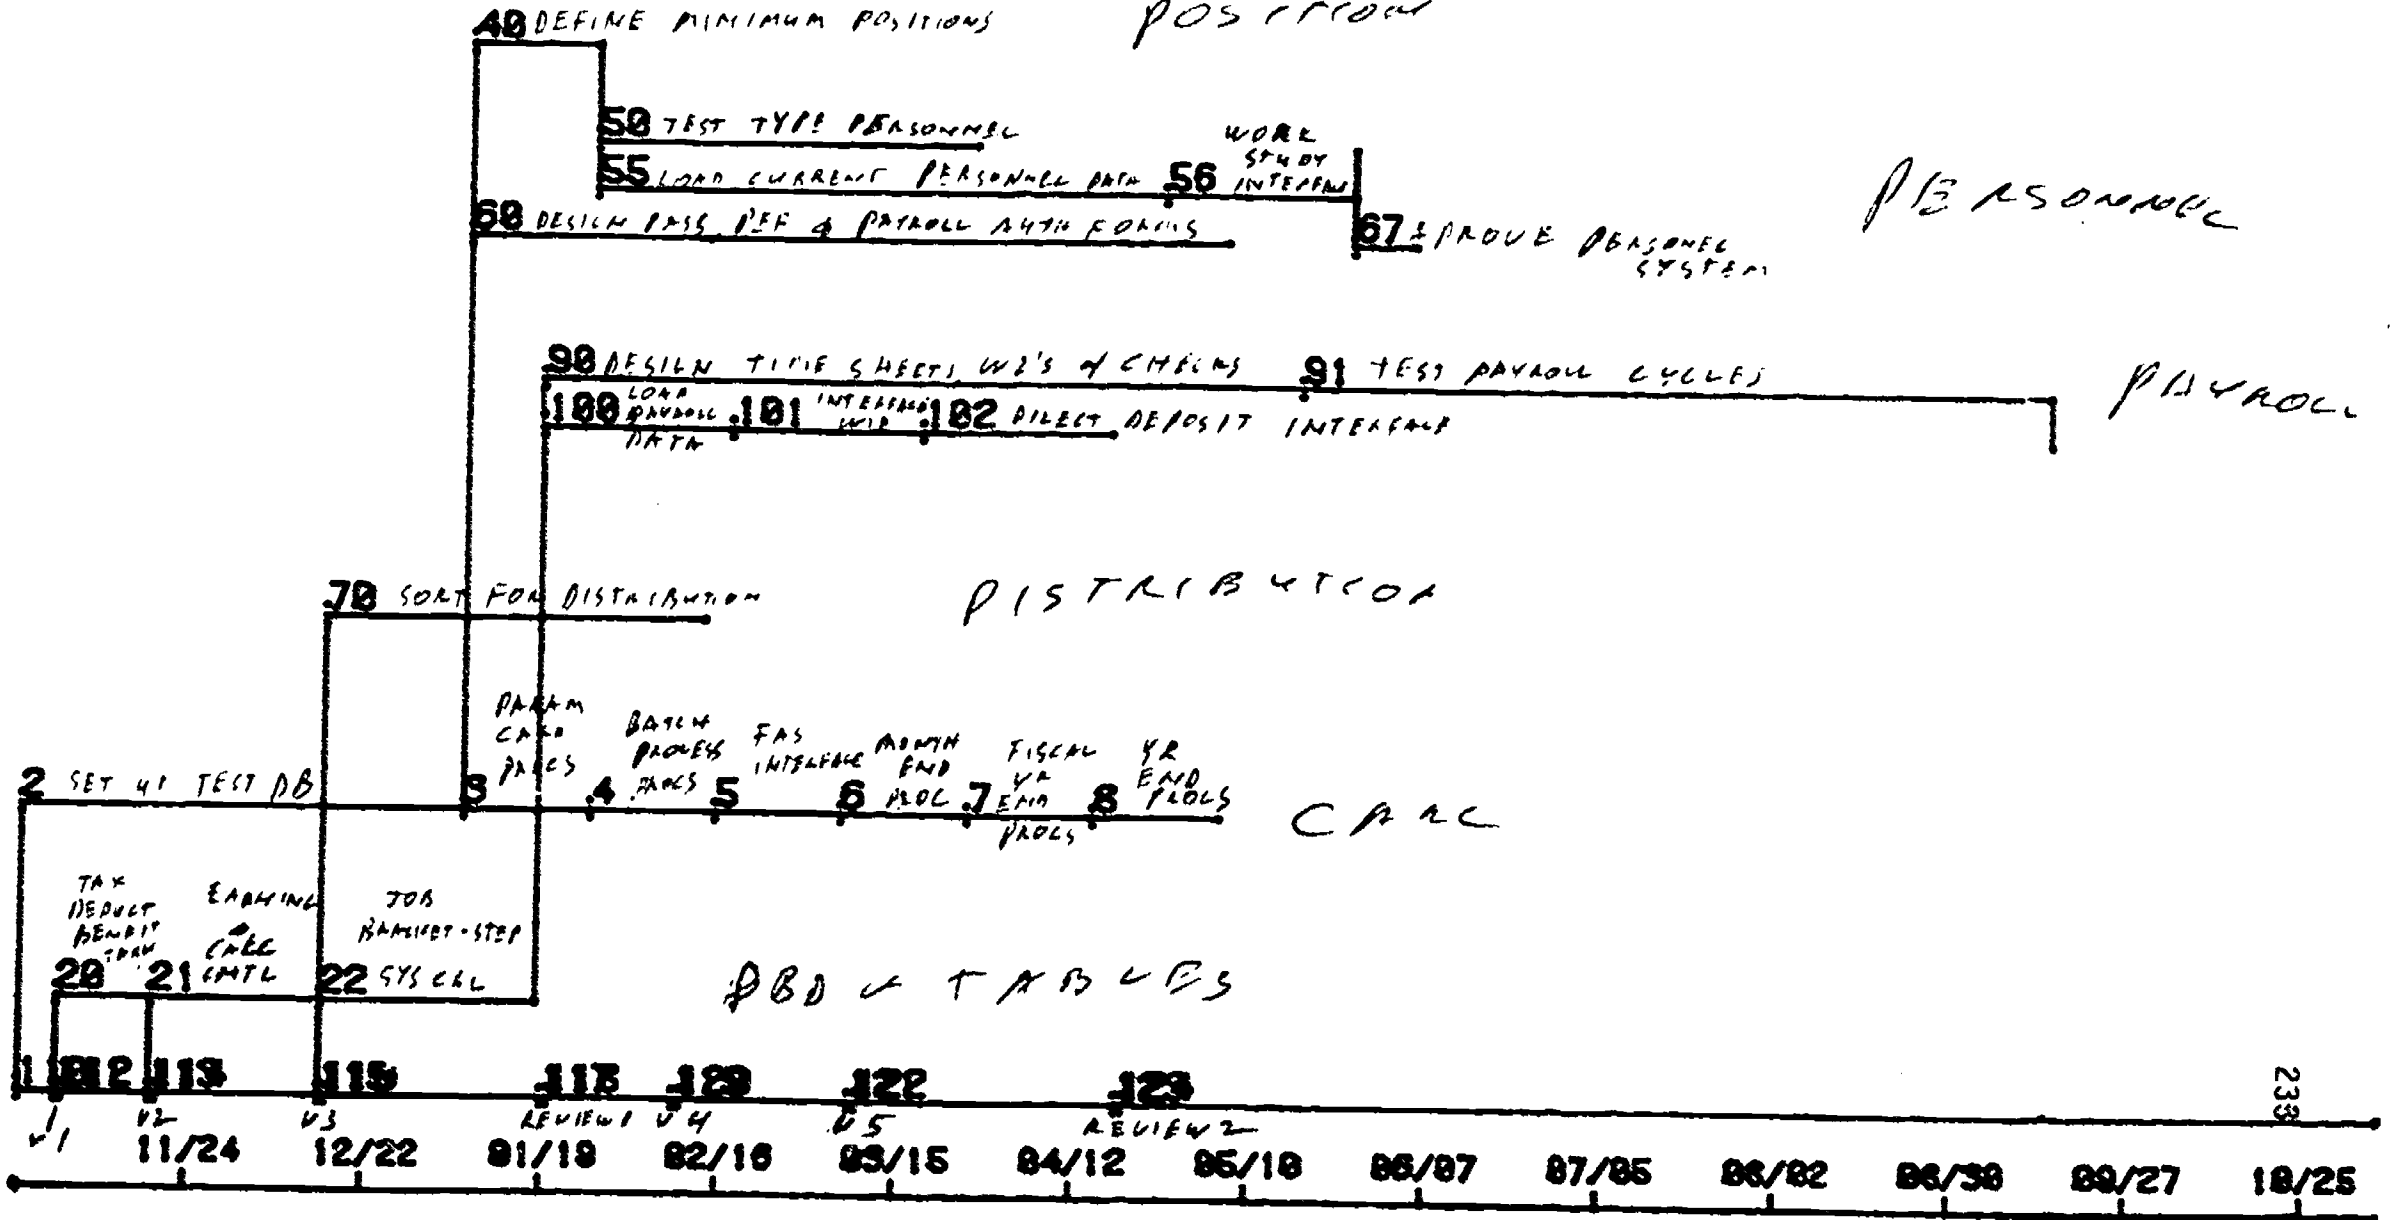 40 DEFINE MINIMUM POSITIONS POSITION
50 TEST TYPE PERSONNEL
WORK
STUDY
55 LOAD CURRENT PERSONNEL DATA 56 INTERFAC
PERSONNEL
60 DESIGN PASS, DEF & PAYROLL AUTH FORMS
67 PROVE PERSONEL
SYSTEM
90 DESIGN TIME SHEETS, W2'S & CHECKS 91 TEST PAYROLL CYCLES
PAYROLL
100 LOAD PAYROLL DATA 101 INTERFACE 102 DIRECT DEPOSIT INTERFACE
70 SORT FOR DISTRIBUTION DISTRIBUTION
2 SET UP TEST DB
3 PARAM CARD PROCS
4 BATCH PROCESS PROCS
5 FAS INTERFACE
6 MONTH END PROC
7 FISCAL YR END PROCS
8 YR END PROCS
CALC
20 TAX DEDUCT BENEFIT
21 EARNING & CALC CNTL
22 JOB SYS CAL
DBD & TABLES
112 113 115 117 122 123
V1 V2 V3 REVIEW 1 V4 V5 REVIEW 2
233
11/24 12/22 01/19 02/16 03/15 04/12 05/10 06/07 07/05 08/02 08/30 09/27 10/25